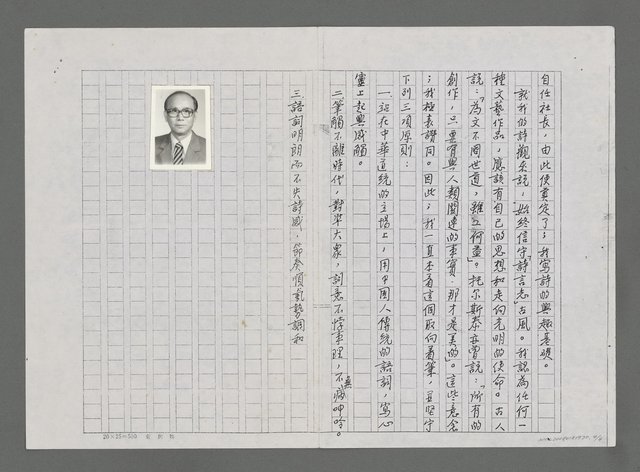 自任社長，由此便奠定了；我寫詩的興趣基礎。
就我的詩觀來說，始終信守「詩言志」古風。我認為任何一
種文藝作品，應該有自己的思想和走向光明的使命。古人
說：「為文不關世道，雖工何益」。托尔斯泰亦曾說：「所有的
創作，只要賓與人類關連的事實，那才是美的」。這些意念
；我極表讚同。因此；我一直本着這個取向著筆，且堅守
下列三項原則：
一站在中華道統的立場上，用中國人傳統的語詞，寫心
靈上起興感觸。
二筆觸不離時代，對準大衆，詞意不悖事理，不無病呻吟。
三語詞明朗而不失詩感，節奏順氣勢調和
20×25=500